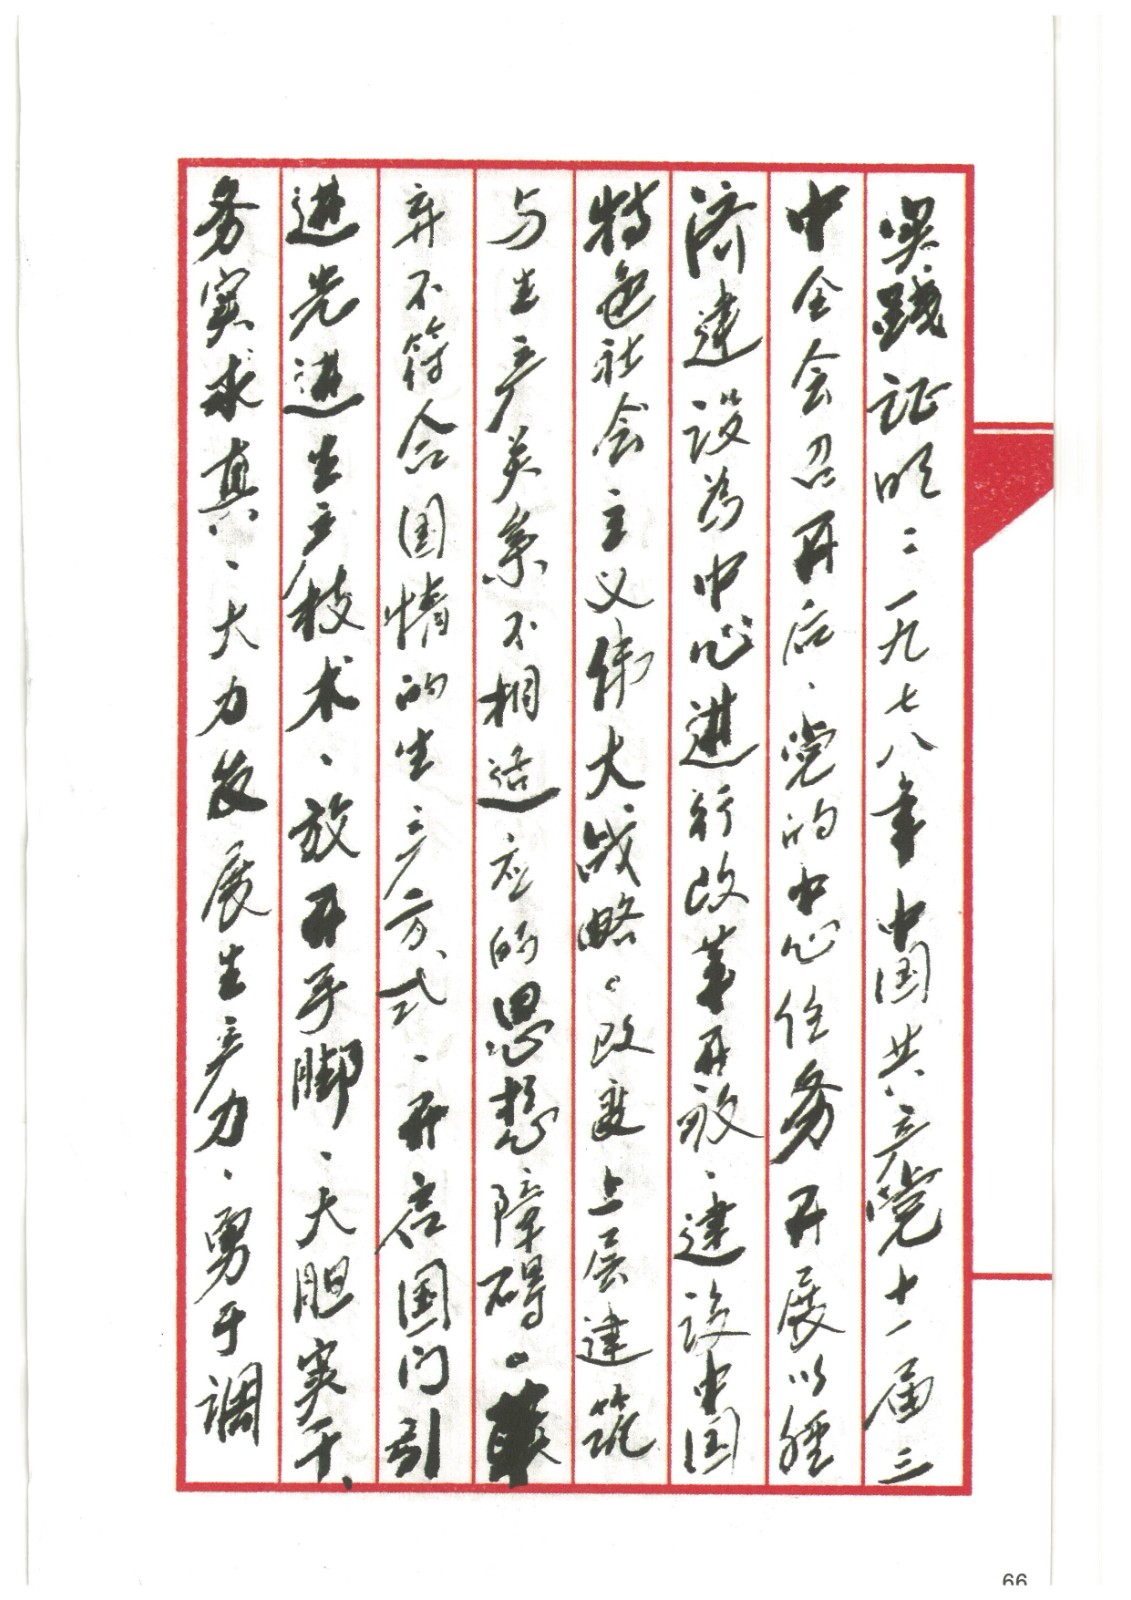 实践证明：一九七八年中国共产党十一届三
中全会召开后、党的中心任务开展以经
济建设為中心進行改革开放、建设中国
特色社会主义伟大战略。改变上层建筑
与生产关系不相适应的思想障碍。
弃不符合国情的生产方式、开启国门引
進先進生产技术、放开手脚、大胆实干、
务实求真、大力发展生产力、勇于调
66